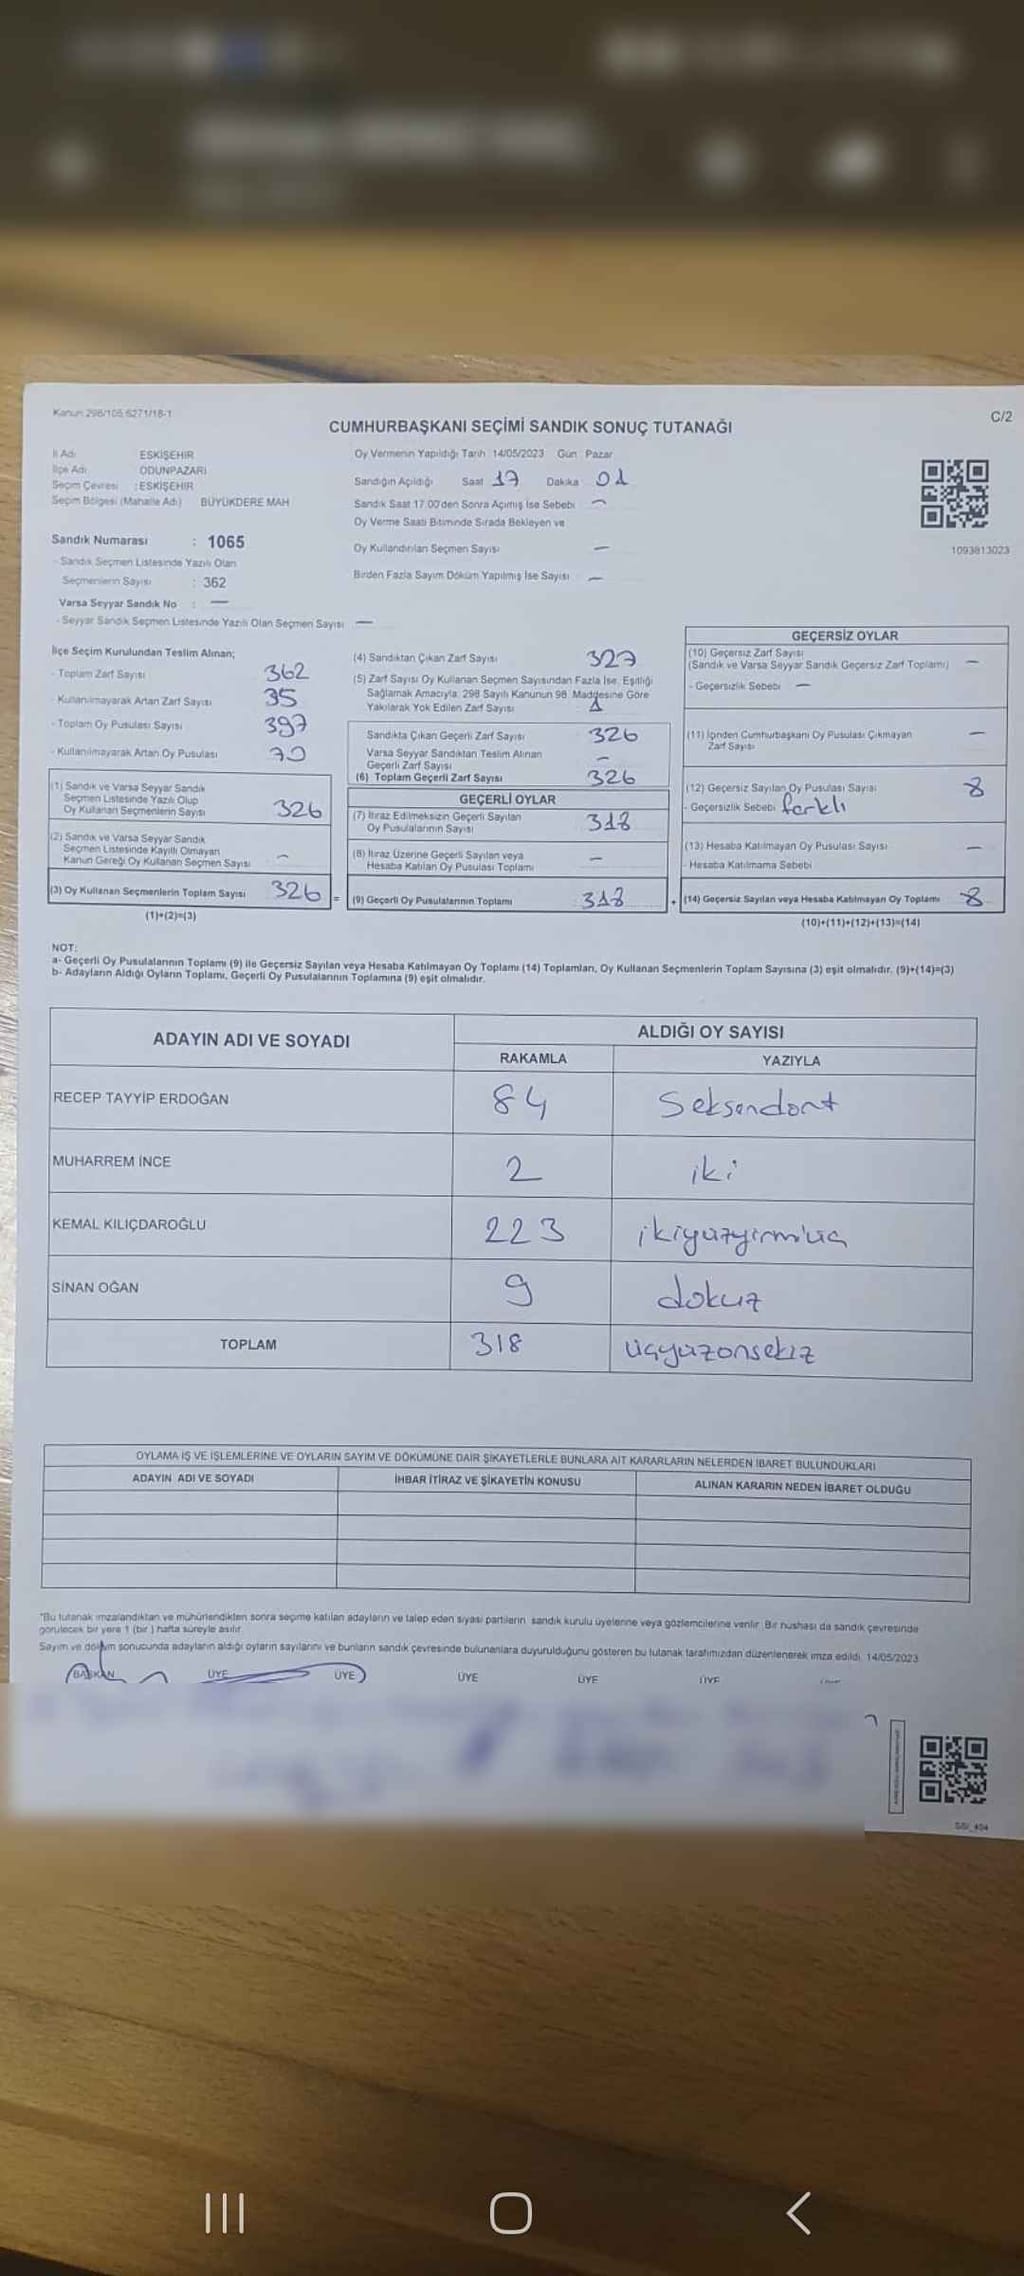 Kanun 298/105 6271/18-1
C/2
CUMHURBAŞKANI SEÇİMİ SANDIK SONUÇ TUTANAĞI
İl Adı ESKİŞEHİR
İlçe Adı ODUNPAZARI
Seçim Çevresi : ESKİŞEHİR
Seçim Bölgesi (Mahalle Adı) BÜYÜKDERE MAH
Sandık Numarası : 1065
- Sandık Seçmen Listesinde Yazılı Olan
Seçmenlerin Sayısı : 362
Varsa Seyyar Sandık No : —
- Seyyar Sandık Seçmen Listesinde Yazılı Olan Seçmen Sayısı —
Oy Vermenin Yapıldığı Tarih 14/05/2023 Gün Pazar
Sandığın Açıldığı Saat 17 Dakika 01
Sandık Saat 17.00'den Sonra Açılmış İse Sebebi —
Oy Verme Saati Bitiminde Sırada Bekleyen ve
Oy Kullandırılan Seçmen Sayısı —
Birden Fazla Sayım Döküm Yapılmış İse Sayısı —
1093813023
İlçe Seçim Kurulundan Teslim Alınan;
- Toplam Zarf Sayısı 362
- Kullanılmayarak Artan Zarf Sayısı 35
- Toplam Oy Pusulası Sayısı 397
- Kullanılmayarak Artan Oy Pusulası
(1) Sandık ve Varsa Seyyar Sandık
Seçmen Listesinde Yazılı Olup
Oy Kullanan Seçmenlerin Sayısı 326
(2) Sandık ve Varsa Seyyar Sandık
Seçmen Listesinde Kayıtlı Olmayan
Kanun Gereği Oy Kullanan Seçmen Sayısı —
(3) Oy Kullanan Seçmenlerin Toplam Sayısı 326 =
(1)+(2)=(3)
(4) Sandıktan Çıkan Zarf Sayısı 327
(5) Zarf Sayısı Oy Kullanan Seçmen Sayısından Fazla İse, Eşitliği
Sağlamak Amacıyla; 298 Sayılı Kanunun 98. Maddesine Göre
Yakılarak Yok Edilen Zarf Sayısı 1
Sandıkta Çıkan Geçerli Zarf Sayısı 326
Varsa Seyyar Sandıktan Teslim Alınan
Geçerli Zarf Sayısı —
(6) Toplam Geçerli Zarf Sayısı 326
GEÇERLİ OYLAR
(7) İtiraz Edilmeksizin Geçerli Sayılan
Oy Pusulalarının Sayısı 318
(8) İtiraz Üzerine Geçerli Sayılan veya
Hesaba Katılan Oy Pusulası Toplamı —
(9) Geçerli Oy Pusulalarının Toplamı 318 +
GEÇERSİZ OYLAR
(10) Geçersiz Zarf Sayısı
(Sandık ve Varsa Seyyar Sandık Geçersiz Zarf Toplamı) —
- Geçersizlik Sebebi —
(11) İçinden Cumhurbaşkanı Oy Pusulası Çıkmayan
Zarf Sayısı —
(12) Geçersiz Sayılan Oy Pusulası Sayısı 8
- Geçersizlik Sebebi farklı
(13) Hesaba Katılmayan Oy Pusulası Sayısı —
- Hesaba Katılmama Sebebi
(14) Geçersiz Sayılan veya Hesaba Katılmayan Oy Toplamı 8
(10)+(11)+(12)+(13)=(14)
NOT:
a- Geçerli Oy Pusulalarının Toplamı (9) ile Geçersiz Sayılan veya Hesaba Katılmayan Oy Toplamı (14) Toplamları, Oy Kullanan Seçmenlerin Toplam Sayısına (3) eşit olmalıdır. (9)+(14)=(3)
b- Adayların Aldığı Oyların Toplamı, Geçerli Oy Pusulalarının Toplamına (9) eşit olmalıdır.
ADAYIN ADI VE SOYADI ALDIĞI OY SAYISI
RAKAMLA YAZIYLA
RECEP TAYYİP ERDOĞAN 84 Seksendört
MUHARREM İNCE 2 iki
KEMAL KILIÇDAROĞLU 223 ikiyüzyirmiüç
SİNAN OĞAN 9 dokuz
TOPLAM 318 üçyüzonsekiz
OYLAMA İŞ VE İŞLEMLERİNE VE OYLARIN SAYIM VE DÖKÜMÜNE DAİR ŞİKAYETLERLE BUNLARA AİT KARARLARIN NELERDEN İBARET BULUNDUKLARI
ADAYIN ADI VE SOYADI İHBAR İTİRAZ VE ŞİKAYETİN KONUSU ALINAN KARARIN NEDEN İBARET OLDUĞU
*Bu tutanak imzalandıktan ve mühürlendikten sonra seçime katılan adayların ve talep eden siyasi partilerin sandık kurulu üyelerine veya gözlemcilerine verilir. Bir nüshası da sandık çevresinde
görülecek bir yere 1 (bir) hafta süreyle asılır.
Sayım ve döküm sonucunda adayların aldığı oyların sayılarını ve bunların sandık çevresinde bulunanlara duyurulduğunu gösteren bu tutanak tarafımızdan düzenlenerek imza edildi. 14/05/2023
BAŞKAN ÜYE ÜYE ÜYE ÜYE ÜYE